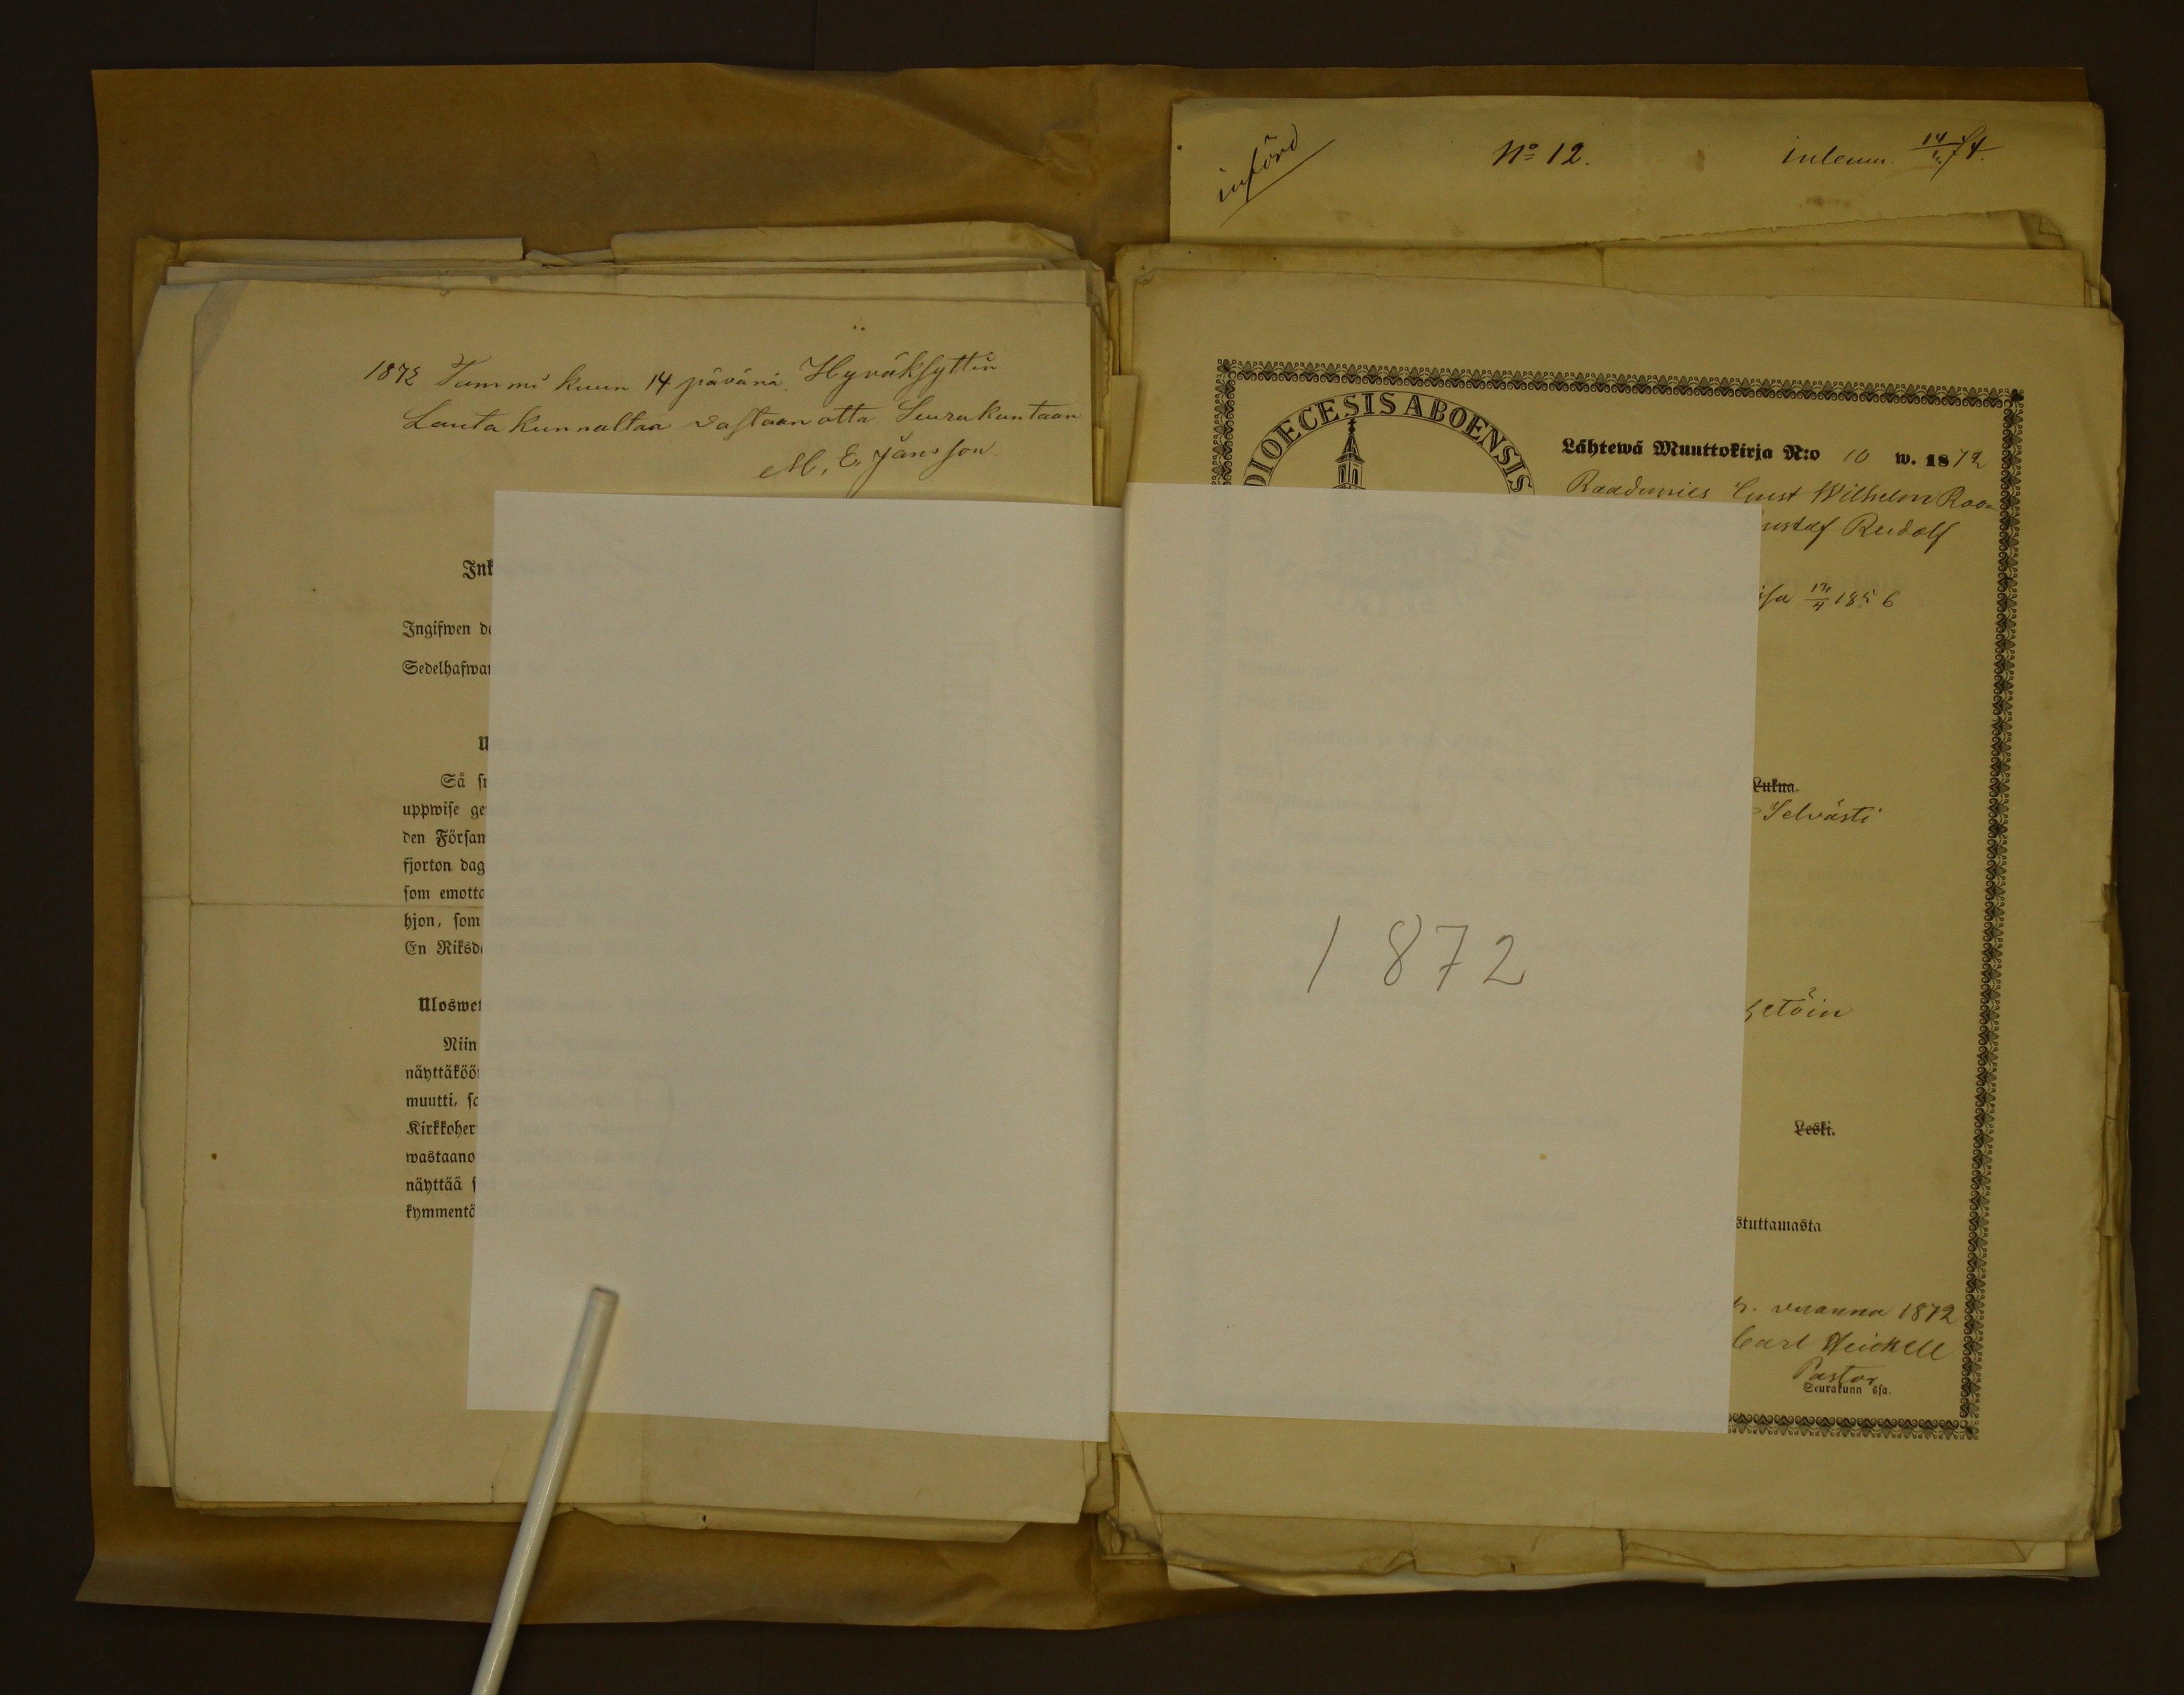 1872 Tammi kuun 14 pävänä Hyväksyttin
Lauta kunnaltaa vastaan otta Seurakuntaan
M. E. Jansson
Ink
Ingifwen da
Sedelhafwar
U
Så sn
uppwise ge
den Försam
fjorton dag
som emotta
hjon, som
En Riksd
Uloswet
Niin
näyttäköö
muutti, sa
Kirkkoher
wastaano
näyttää s
kymmentä
införd
No 12.
inlemn. 14/74.
DIOECESIS ABOENSIS
Lähtewä Muuttokirja N:o 10 w. 1872
Raadimies Ernst Wilhelm Roo=
ustaf Rudolf
isa 17/4 1856
Lukua.
Selvästi
1872
etöin
Leski.
stuttamasta
p. vuanna 1872
Carl Heickell
Pastor
Seurakunn ssa.